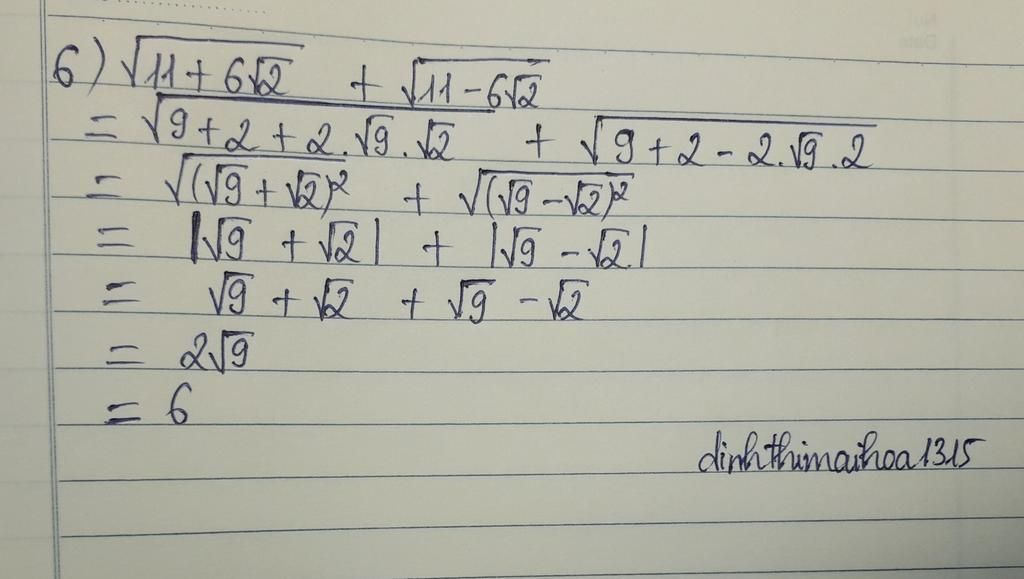 6) √(11 + 6√2) + √(11 - 6√2)
= √(9 + 2 + 2.√9.√2) + √(9 + 2 - 2.√9.2)
= √((√9 + √2)²) + √((√9 - √2)²)
= |√9 + √2| + |√9 - √2|
= √9 + √2 + √9 - √2
= 2√9
= 6
dinhthimaihoa1315